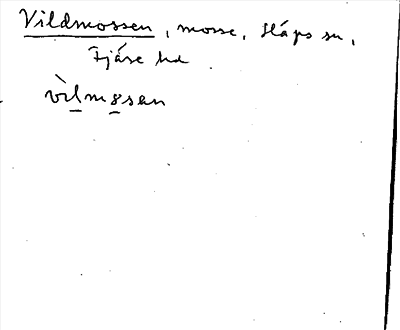 Vildmossen, mosse, Släps sn,
Fjäre hd
vìlmɷsen